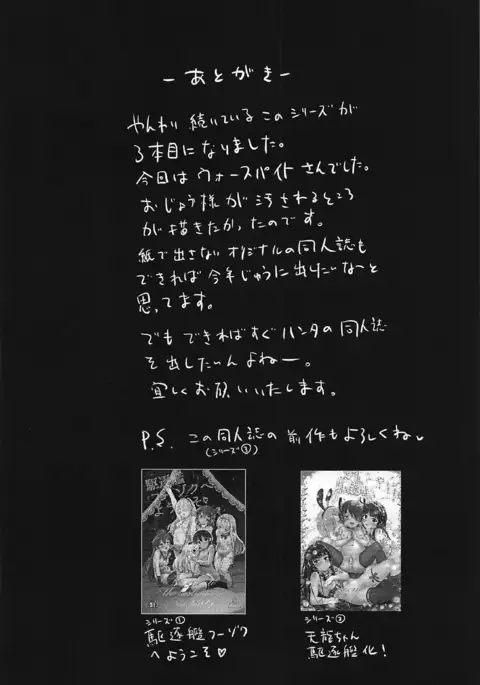 －あとがき－
やんわり続いているこのシリーズが
3本目になりました。
今回はウォースパイトさんでした。
おじょう様が汚されるところ
が描きたかったのです。
紙で出さないオリジナルの同人誌も
できれば今年じゅうに出したいなーと
思ってます。
でもできればすぐハンタの同人誌
を出したいんよねー。
宜しくお願いいたします。
P.S. この同人誌の前作もよろしくね♥
(シリーズ③)
シリーズ①
駆逐艦フーゾク
へようこそ♡
シリーズ②
天龍ちゃん
駆逐艦化!